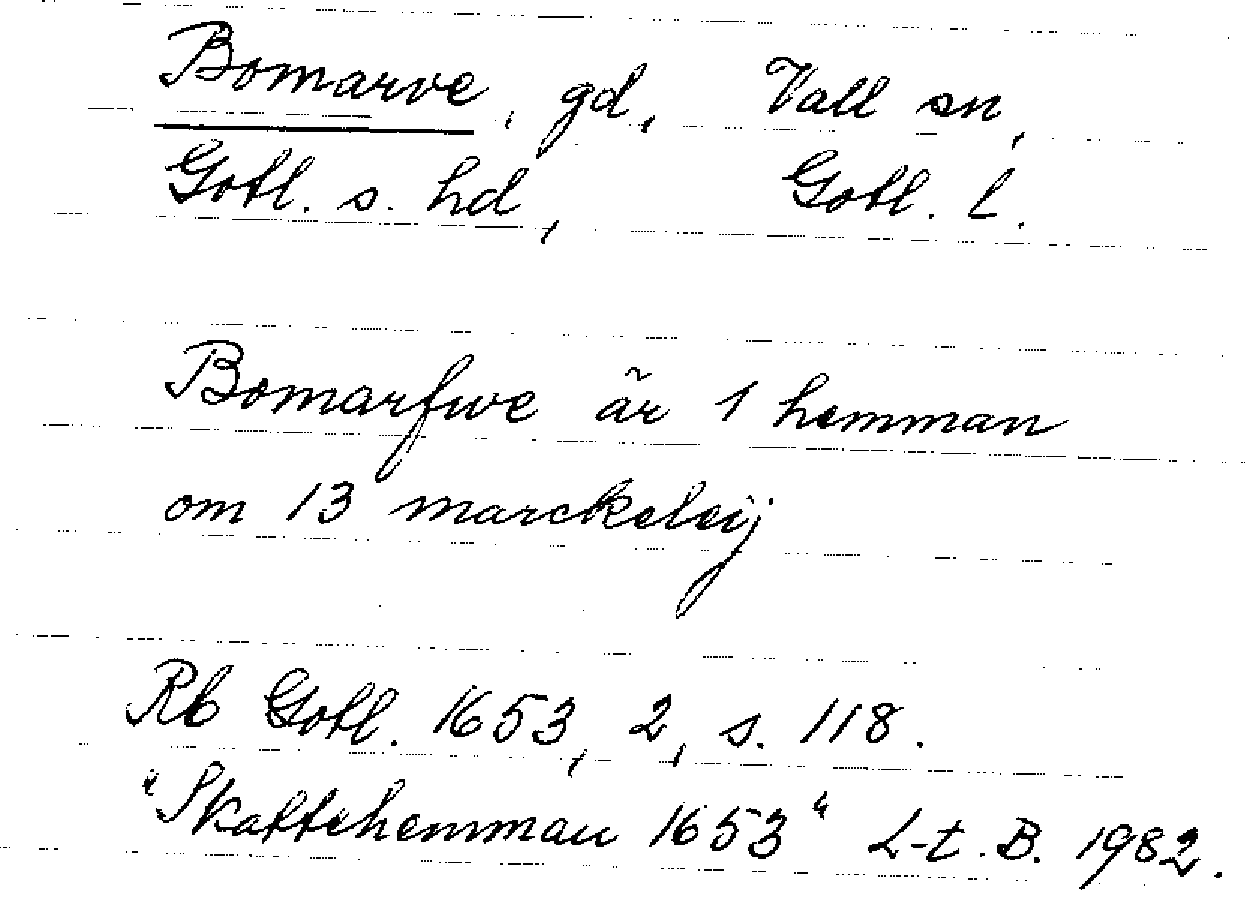 Bomarve, gd, Vall sn,
Gotl. s. hd, Gotl. l.
Bomarfwe är 1 hemman
om 13 marckeleij
Rb Gotl. 1653, 2, s. 118.
"Skattehemman 1653" L-t. B. 1982.